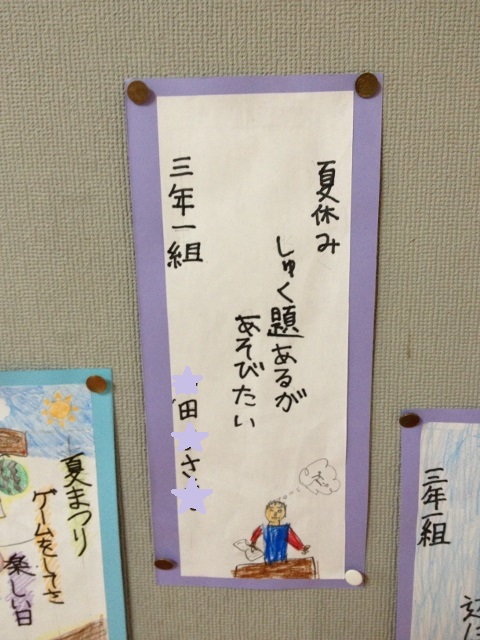 夏休み
しゅく題あるが
あそびたい
三年一組
田
さ
夏まつり
ゲームをしてさ
楽しい日
三年一組